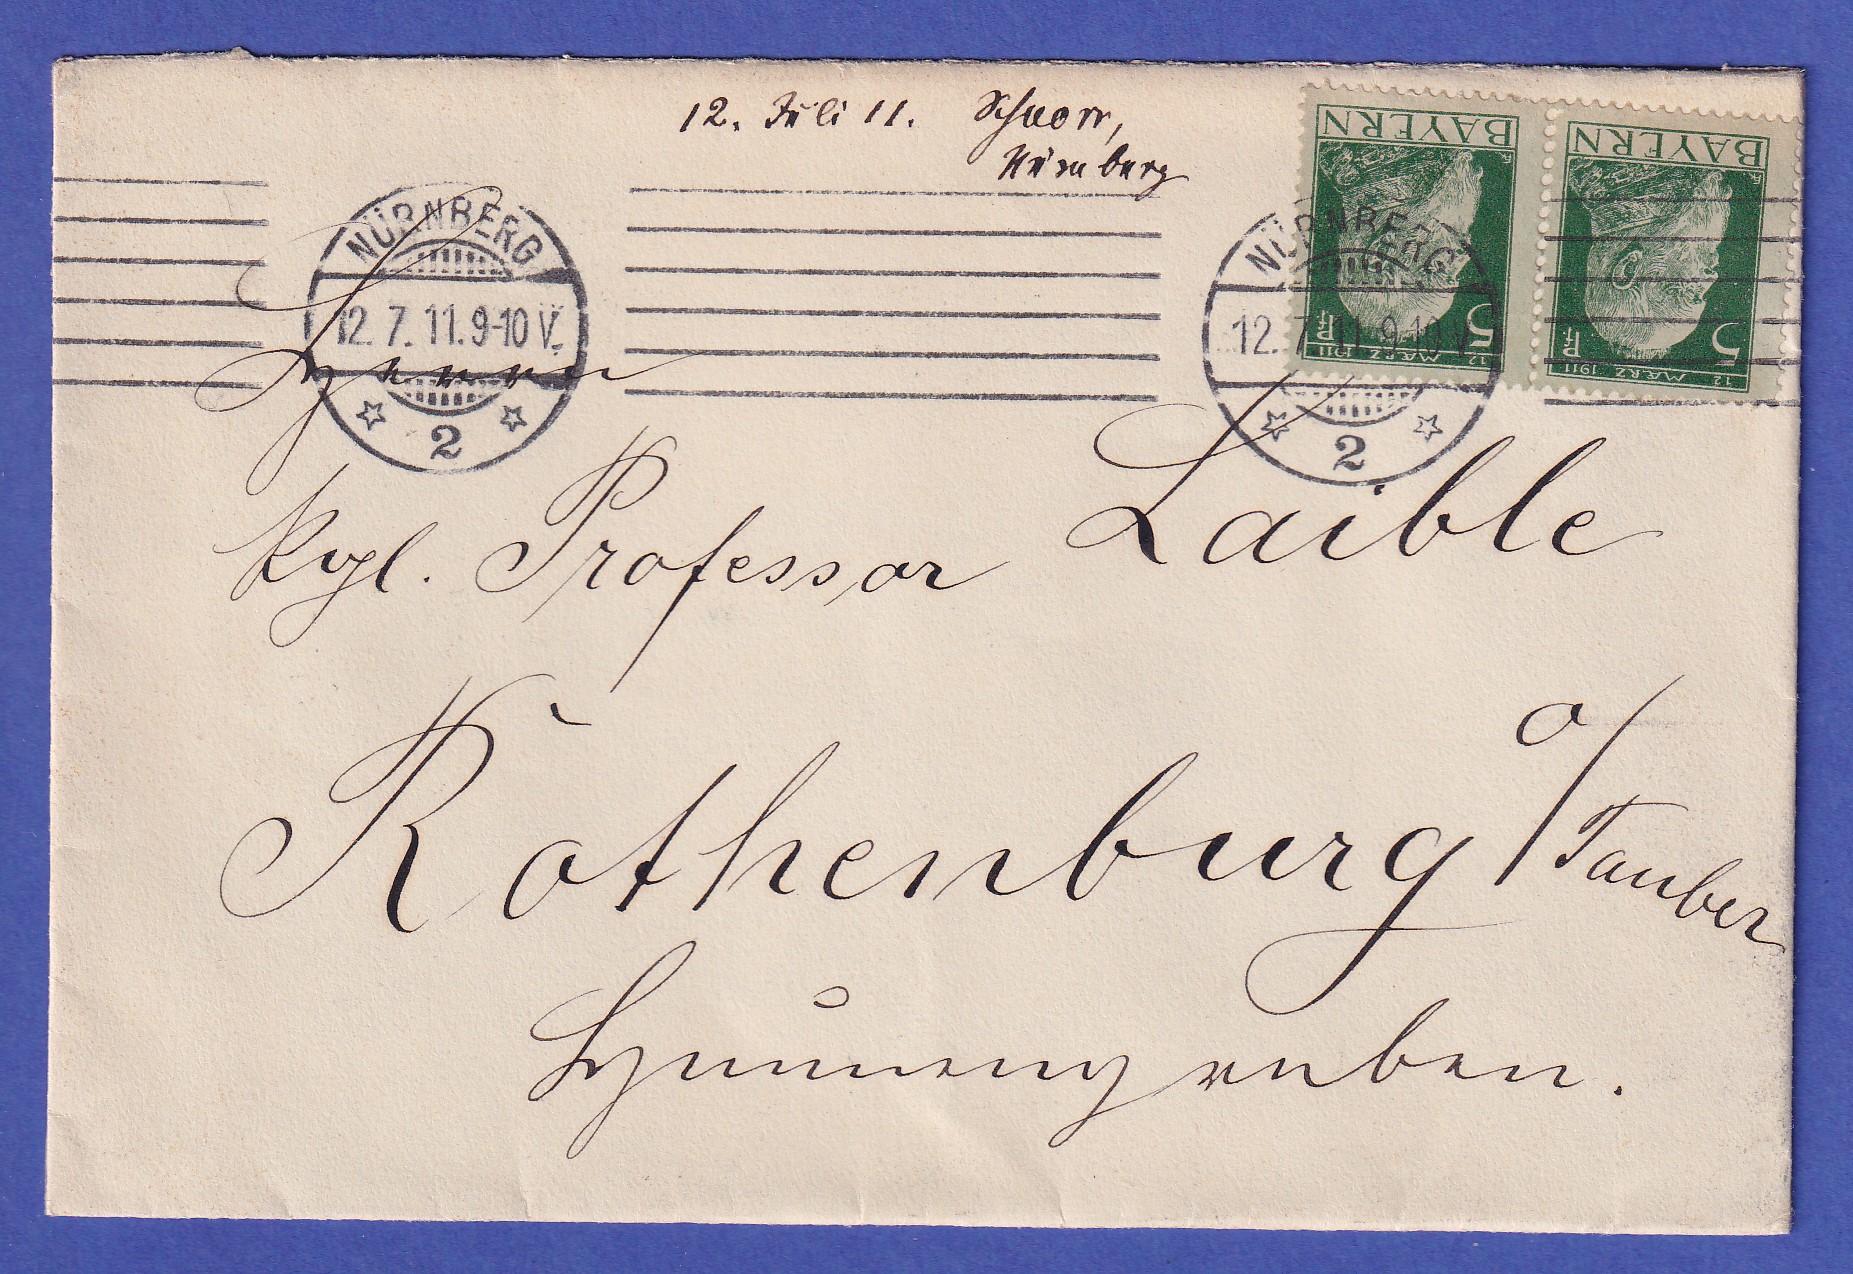 12. Juli 11. Schnorr,
Nürnberg
BAYERN
5 Pf
12 MÆRZ 1911
BAYERN
5 Pf
12 MÆRZ 1911
NÜRNBERG
12. 7. 11. 9-10 V.
2
NÜRNBERG
12. 7. 11. 9-10 V.
2
Herrn
kgl. Professor Laible
Rothenburg o/Tauber